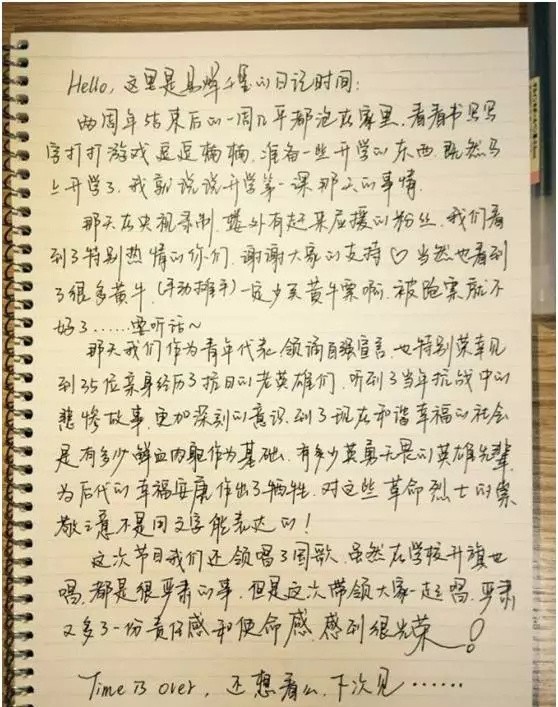 Hello, 这里是易烊千玺的日记时间:
两周年结束后的一周几乎都泡在家里, 看看书写写
字打打游戏逗逗楠楠, 准备一些开学的东西. 既然马
上开学了, 我就说说开学第一课那天的事情.
那天在央视录制, 楼外有赶来应援的粉丝, 我们看
到了特别热情的你们, 谢谢大家的支持♡ 当然也看到
了很多黄牛 (手动推手) 一定少买黄牛票啊, 被骗票就不
好了……要听话~
那天我们作为青年代表, 领诵自强宣言, 也特别荣幸见
到35位亲身经历了抗日的老英雄们, 听到了当年抗战中的
悲惨故事, 更加深刻的意识到了现在和谐幸福的社会
是有多少鲜血肉躯作为基础, 有多少英勇无畏的英雄先辈
为后代的幸福安康作出了牺牲. 对这些革命烈士的崇
敬之意不是用文字能表达的!
这次节目我们还领唱了国歌, 虽然在学校升旗也
唱, 都是很严肃的事, 但是这次带领大家一起唱, 严肃
又多了一份责任感和使命感, 感到很光荣!
Time is over, 还想看么, 下次见……